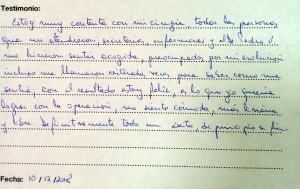 Testimonio:
Estoy muy contenta con mi cirugía todas las personas
que me atendieron, secretaria, enfermeras y el Dr.
me hicieron sentir acogida, preocupados por mi evolución
incluso me llamaron reiteradas veces para saber como me
sentía, con el resultado estoy feliz, es lo que yo quería
lograr con la operación, me siento cómoda, más liviana
y libre definitivamente todo un éxito de principio a fin.
Fecha: 10/12/2018